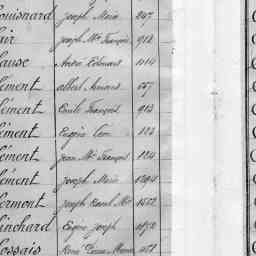 ouisnard Joseph Marie 247
air Joseph Mie François 912
lause André Edouard 1114
lément Albert Amand 157
lément Emile François 913
lément Eugène Léon 123
lément Jean Mie François 124
lément Joseph Marie 1394
lermont Joseph Raoul Mie 1552
linchard Eugène Joseph 1472
lossais René Pierre Marie 1157